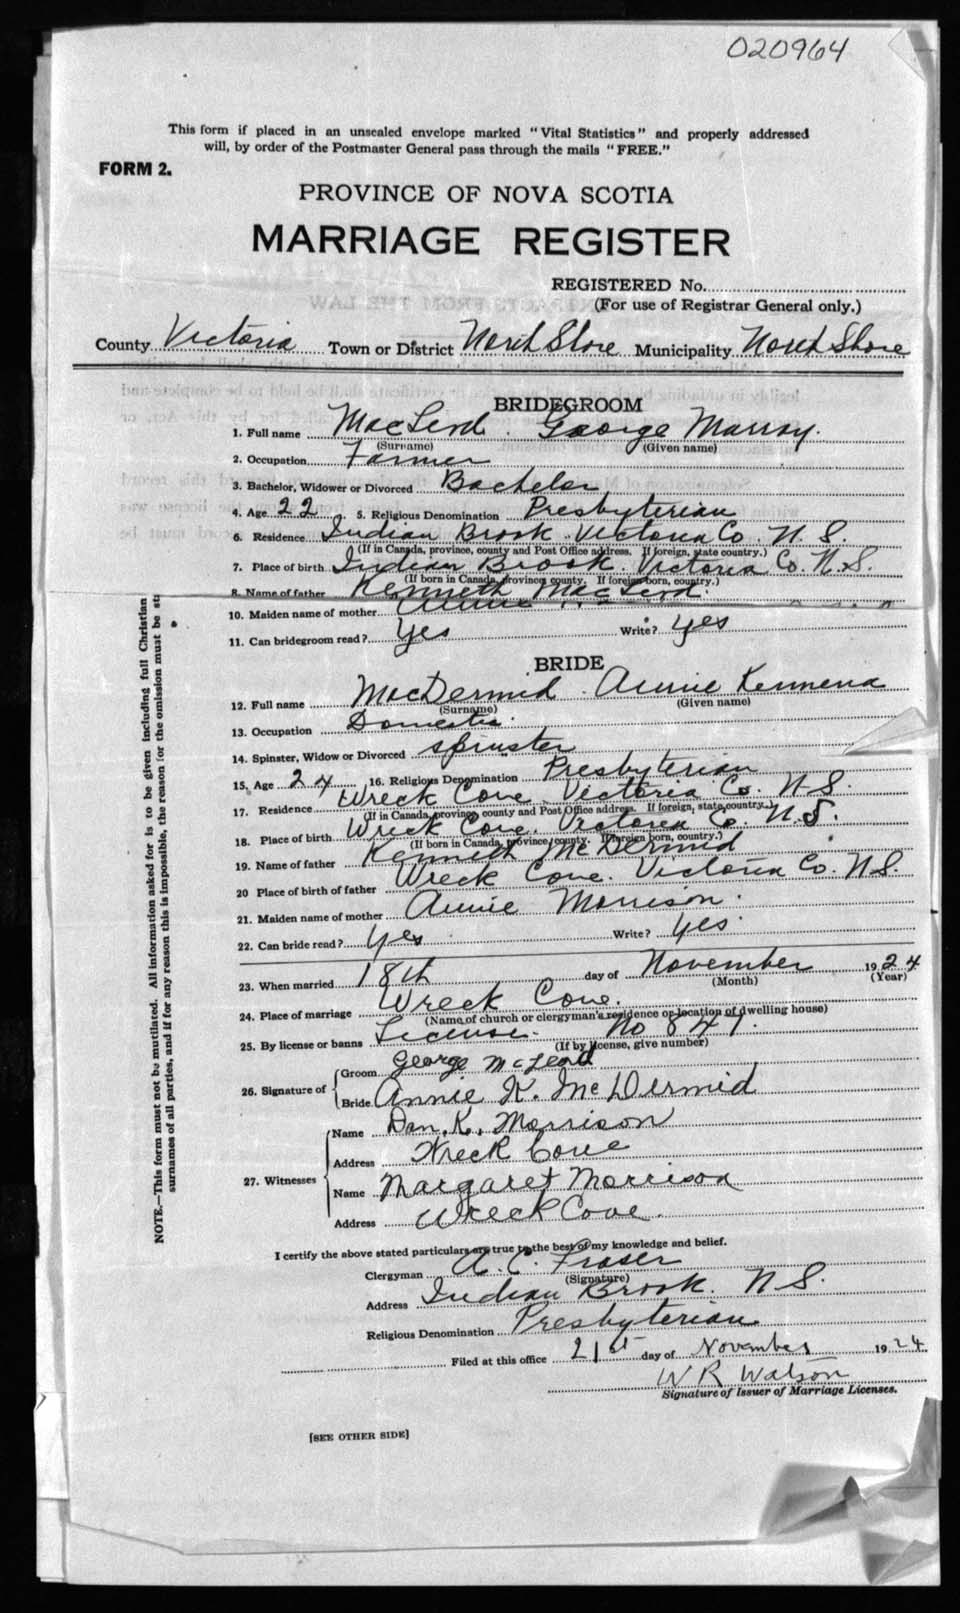 020964
This form if placed in an unsealed envelope marked "Vital Statistics" and properly addressed
will, by order of the Postmaster General pass through the mails "FREE."
FORM 2.
PROVINCE OF NOVA SCOTIA
MARRIAGE REGISTER
REGISTERED No.
(For use of Registrar General only.)
County Victoria Town or District North Shore Municipality North Shore
BRIDEGROOM
1. Full name MacLeod George Murray.
(Surname) (Given name)
2. Occupation Farmer
3. Bachelor, Widower or Divorced Bachelor
4. Age 22 5. Religious Denomination Presbyterian
6. Residence Indian Brook Victoria Co. N. S.
(If in Canada, province, county and Post Office address. If foreign, state country.)
7. Place of birth Indian Brook. Victoria Co. N.S.
(If born in Canada, province county. If foreign born, country.)
8. Name of father Kenneth MacLeod.
10. Maiden name of mother Annie
11. Can bridegroom read? Yes Write? yes
BRIDE
12. Full name MacDermid. Annie Kennena
(Surname) (Given name)
13. Occupation Domestic.
14. Spinster, Widow or Divorced spinster
15. Age 24 16. Religious Denomination Presbyterian
17. Residence Wreck Cove Victoria Co. N.S.
(If in Canada, province, county and Post Office address. If foreign, state country.)
18. Place of birth Wreck Cove. Victoria Co. N.S.
(If born in Canada, province, county. If foreign born, country.)
19. Name of father Kenneth McDermid
20 Place of birth of father Wreck Cove. Victoria Co. N.S.
21. Maiden name of mother Annie Morrison.
22. Can bride read? Yes Write? yes
23. When married 18th day of November 1924
(Month) (Year)
24. Place of marriage Wreck Cove.
(Name of church or clergyman's residence or location of dwelling house)
25. By license or banns License. No 841.
(If by license, give number)
26. Signature of Groom George McLeod
Bride Annie K. McDermid
27. Witnesses Name Dan. K. Morrison
Address Wreck Cove
Name Margaret Morrison
Address Wreck Cove.
I certify the above stated particulars are true to the best of my knowledge and belief.
Clergyman A. C. Fraser
(Signature)
Address Indian Brook. N S.
Religious Denomination Presbyterian
Filed at this office 21st day of November 1924
W R Watson
Signature of Issuer of Marriage Licenses.
[SEE OTHER SIDE]
NOTE.—This form must not be mutilated. All information asked for is to be given including full Christian
surnames of all parties, and if for any reason this is impossible, the reason for the omission must be